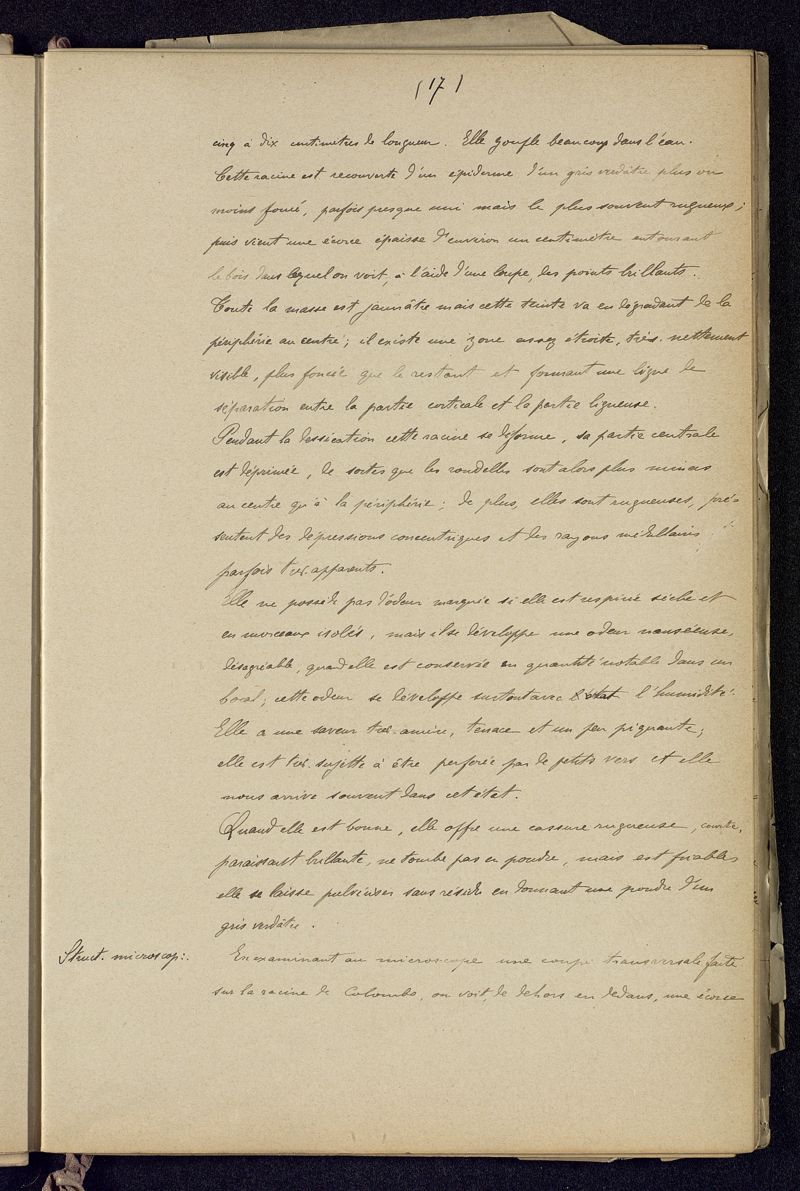 (17)
cinq à dix centimetres de longueur. Elle gonfle beaucoup dans l'eau.
Cette racine est recouverte d'un épiderme d'un gris verdâtre plus ou
moins foncé, parfois presque uni mais le plus souvent rugueux;
puis vient une écorce épaisse d'environ un centimètre entourant
le bois dans lequel on voit, à l'aide d'une loupe, des points brillants.
Toute la masse est jaunâtre mais cette teinte va en dégradant de la
périphérie au centre; il existe une zone assez étroite, très-nettement
visible, plus foncée que le restant et formant une ligne de
séparation entre la partie corticale et la partie ligneuse.
Pendant la dessication cette racine se déforme, sa partie centrale
est déprimée, de sortes que les rondelles sont alors plus minces
au centre qu'à la périphérie; de plus, elles sont rugueuses, pré-
sentent des dépressions concentriques et des rayons médullaires
parfois très-apparents.
Elle ne possède pas d'odeur marquée si elle est respirée sèche et
en morceaux isolés, mais il se développe une odeur nauséeuse,
désagréable, quand elle est conservée en quantité notable dans un
bocal; cette odeur se développe surtout avec l'état l'humidité.
Elle a une saveur très-amère, tenace et un peu piquante;
elle est très-sujette à être perforée par de petits vers et elle
nous arrive souvent dans cet état.
Quand elle est bonne, elle offre une cassure rugueuse, courte,
paraissant brillante, ne tombe pas en poudre, mais est friable,
elle se laisse pulvériser sans résidu en donnant une poudre d'un
gris verdâtre.
Struct. microscop:.
En examinant au microscope une coupe transversale faite
sur la racine de Colombo, on voit, de dehors en dedans, une écorce